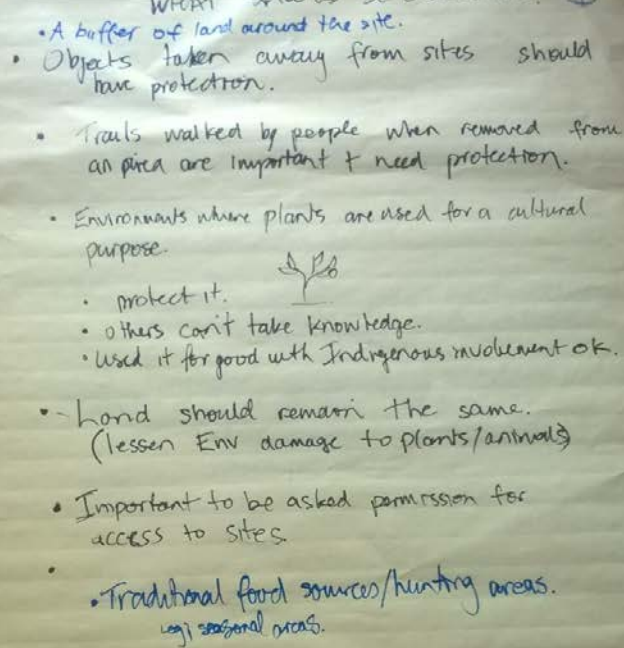 WHAT
• A buffer of land around the site.
• Objects taken away from sites should
have protection.
• Trails walked by people when removed from
an area are important + need protection.
• Environments where plants are used for a cultural
purpose.
• protect it.
• others can't take knowledge.
• Used it for good with Indigenous involvement ok.
• - Land should remain the same.
(lessen Env damage to plants/animals)
• Important to be asked permission for
access to sites.
•
• Traditional food sources/hunting areas.
seasonal areas.